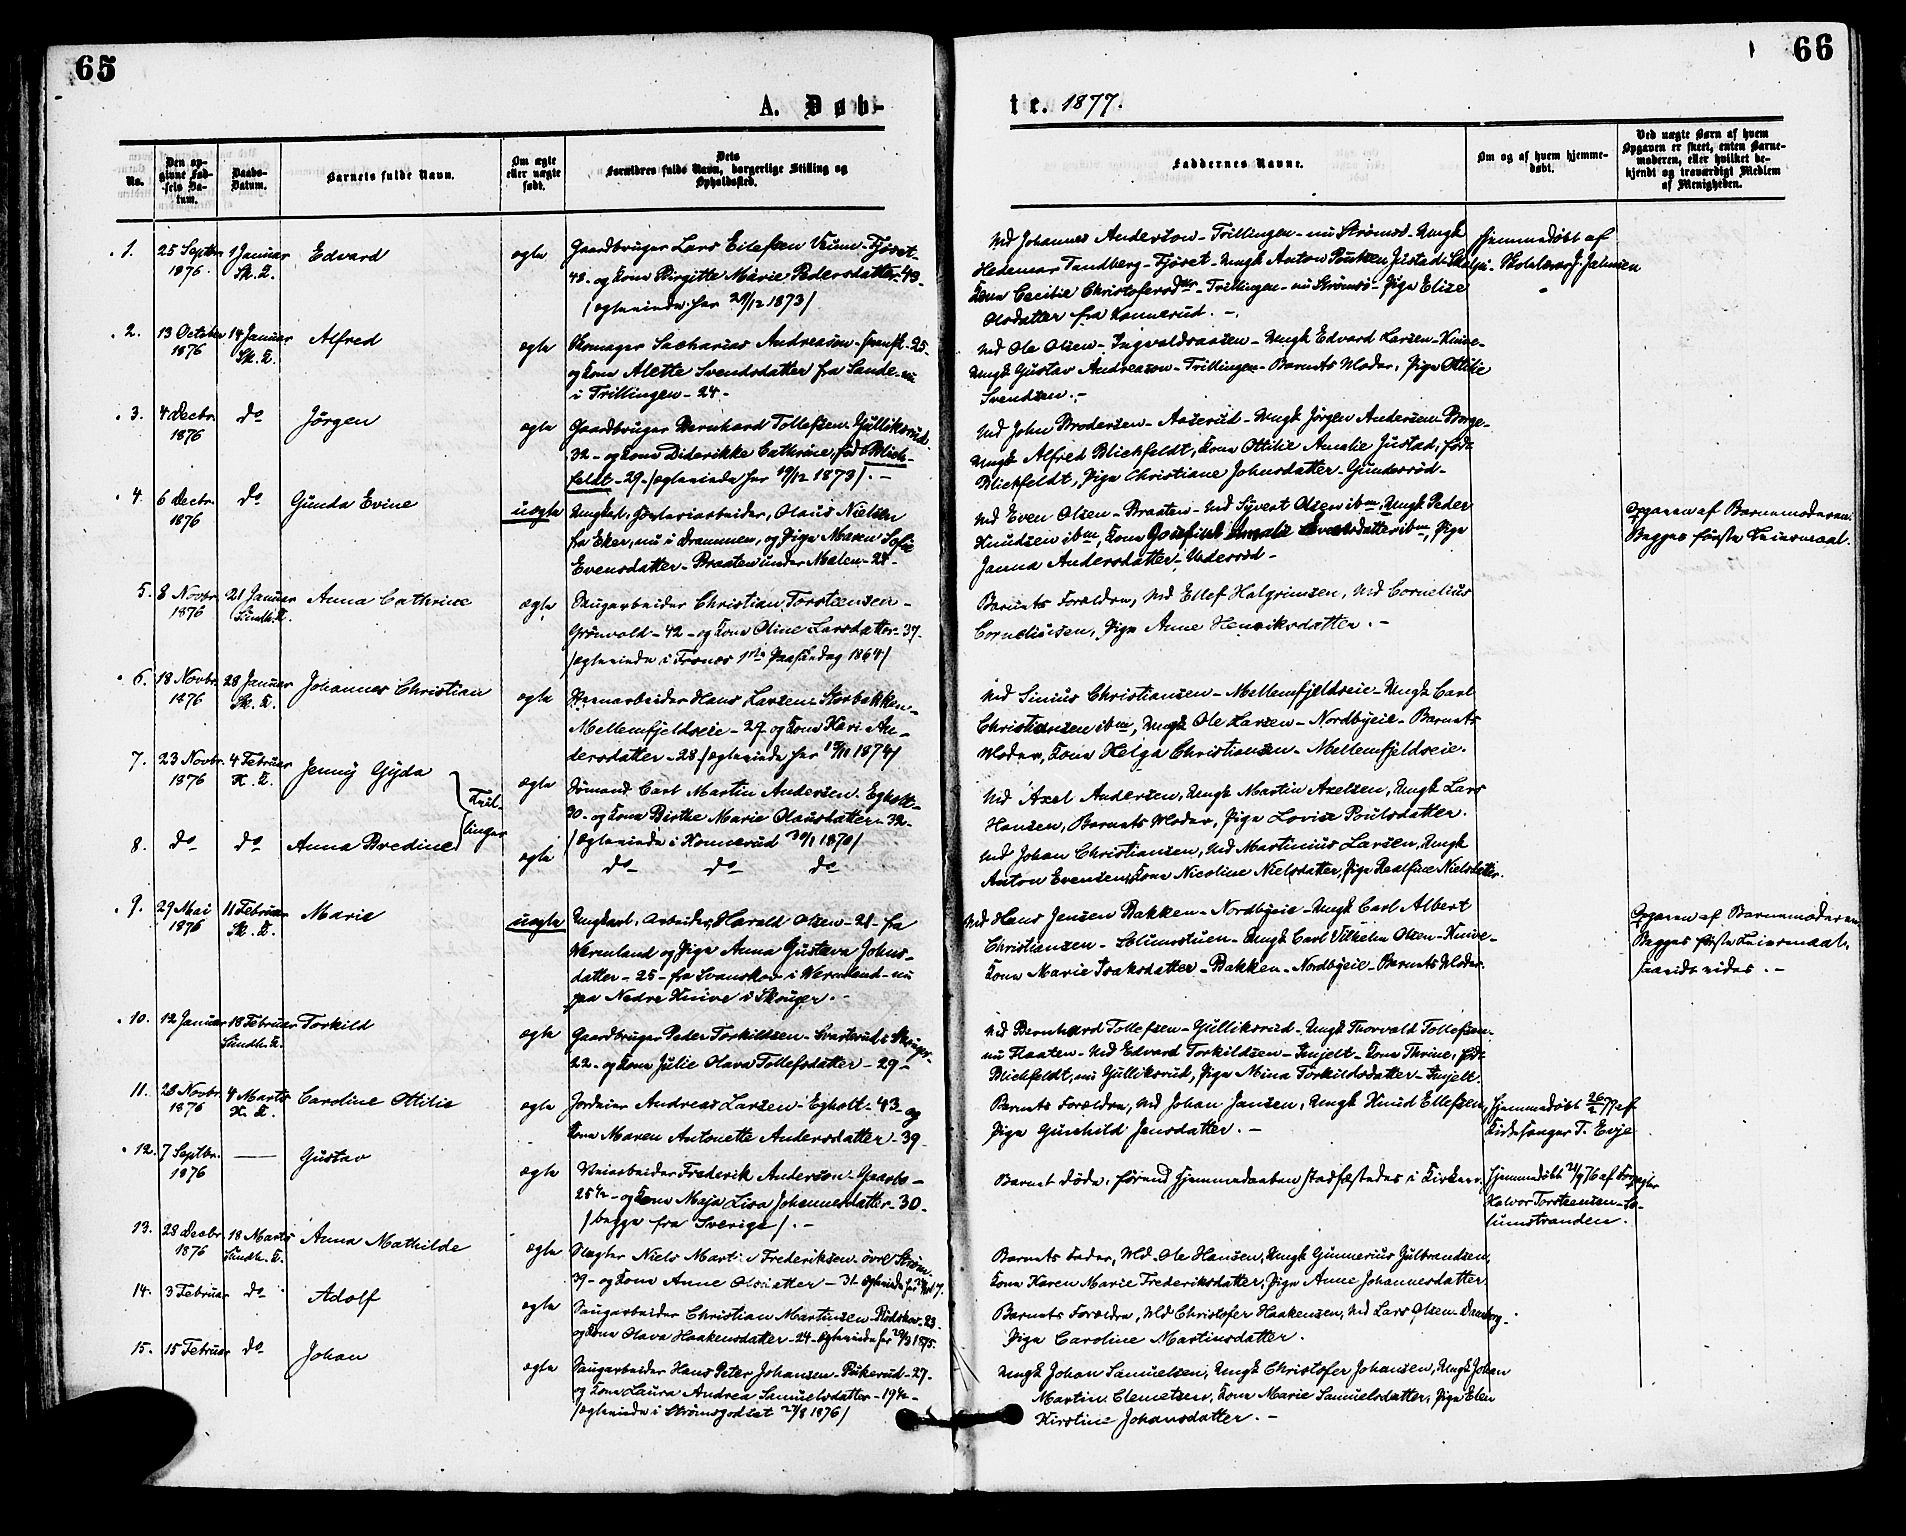 65
66
A. Døb-
te. 1877.
No.
Den op-
givne Fød-
sels Da-
tum.
Daabs-
Datum.
Barnets fulde Navn.
Om ægte
eller uægte
født.
Dets
Forældres fulde Navn, borgerlige Stilling og
Opholdssted.
Faddernes Navne.
Om og af hvem hjemme-
døbt.
Ved uægte Børn af hvem
Opgaven er skeet, enten Barne-
moderen, eller hvilket be-
kjendt og troværdigt Medlem
af Menigheden.
1. 25 Septbr. 1 Januar Edvard ægte Gaardbruger Lars Eilefsen Veum - Fjøset -
1876. Sk. K. 48 - og Kone Birgitte Marie Pedersdatter - 49 -
/ægteviede her 29/12 1873/
Md Johannes Anderson - Trillingen - nu Strømsø - Ungk
Hedemar Tandberg - Fjøset - Ungk Anton Poulsen Justad
Kone Cecilie Christofersdtr - Trillingen - nu Strømsø - Pige Elise
Olsdatter fra Konnerud. -
Hjemmedøbt af
2. 13 October 14 Januar Alfred ægte Skomager Sacharias Andreason - 25 -
1876 Sk. K. og Kone Alette Svendsdatter fra Sande - nu
i Trillingen - 24 -
Md Ole Olsen - Ingvaldsaasen - Ungk Edvard Larsen - Knive -
Ungk Gustav Andreason - Trillingen - Barnets Moder, Pige Ottilie
Svendsen. -
3. 4 Decbr. do Jørgen ægte Gaardbruger Bernhard Tollefsen - Gulliksrud
1876 32 - og Kone Diderikke Cathrine, født Blich-
feldt - 29 - /ægteviede her 19/12 1873/. -
Md John Brodersen - Aaserud - Ungk Jørgen Andersen - Borge -
Ungk Alfred Blichfeldt, Kone Ottilie Amalie Justad, født
Blichfeldt, Pige Christiane Johnsdatter - Gunderød -
4. 6 Decbr. do Gunda Evine uægte Ungkarl, Olaus Nielsen
1876 fra Eker, nu i Drammen, og Pige Maren Sofie
Evensdatter - Braaten under Malen - 21 -
Md Even Olsen - Braaten - Md Syvert Olsen ibm, Ungk Peder
Knudsen ibm, Kone Josefine Amalie ibm, Pige
Janna Andersdatter - Underrød -
Opgaven af Barnemoderen.
Begges første Leiermaal.
5. 8 Novbr. 21 Januar Anna Cathrine ægte Skugarbeider Christian Torstensen -
1876 Sundh. K. Grønvold - 42 - og Kone Oline Larsdatter - 37 -
/ægteviede i Frones 1ste Paaskedag 1864/
Barnets Forældre, Md Ellef Halgrimsen, Md Cornelius
Corneliusen, Pige Anne Henriksdatter. -
6. 18 Novbr. 28 Januar Johannes Christian ægte Hans Larsen Storbakken -
1876 Sk. K. Mellemfjeldseie - 29 - og Kone Kari An-
dersdatter - 28 /ægteviede her 1874/
Md Sinius Christiansen - Mellemfjeldseie - Ungk Carl
Christiansen ibm, Ungk Ole Larsen - Nordbyeie - Barnets
Moder, Kone Helga Christiansen - Mellemfjeldseie.
7. 23 Novbr. 4 Februar Jenny Gyda ægte Jomand Carl Martin Andersen - Egholt -
1876 K. K. 30 - og Kone Birthe Marie Olausdatter - 32 -
/ægteviede i Konnerud 30/1 1870/
Tvil-
linger
Md Axel Andersen, Ungk Martin Axelsen, Ungk Lars
Hansen, Barnets Moder, Pige Lovise Poulsdatter.
8. do do Anna Bredine ægte do do do
Md Johan Christiansen, Md Martinius Larsen, Ungk
Anton Evensen, Kone Nicoline Nielsdatter, Pige Nielsdatter.
9. 29 Mai 11 Februar Marie uægte Ungkarl, Arbeider, Harald Olsen - 21 - fra
1876 Sk. K. Wermland og Pige Anna Gustava Johns-
datter - 25 - fra Svanskov i Wermland - nu
paa Nedre Knive i Skouger. -
Md Hans Jensen Bakken - Nordbyeie - Ungk Carl Albert
Christiansen - Solumstuen - Ungk Carl Vilhelm Olsen - Knive -
Kone Marie Isaksdatter - Bakken - Nordbyeie - Barnets Moder.
Opgaven af Barnemoderen
Begges første Leiermaal,
saavidt vides. -
10. 12 Januar 18 Februar Torkild ægte Gaardbruger Peder Torkildsen - Svarterud i Skouger -
Sundh. K. 22 - og Kone Julie Olava Tollefsdatter - 29 -
Md Bernhard Tollefsen - Gulliksrud - Ungk Thorvald Tollefsen
nu Flaaten - Md Edvard Torkildsen - - Kone Thrine, født
Blichfeldt, nu Gulliksrud, Pige Mina Torkildsdatter -
11. 28 Novbr. 4 Marts Caroline Ottilie ægte Jordeier Andreas Larsen - Egholt - 43 og
1876 K. K. Kone Maren Antonette Andersdatter - 39 -
Barnets Forældre, Md Johan Jansen, Ungk Knud Ellefsen,
Pige Gunhild Jensdatter. -
Hjemmedøbt 26/2 77 af
Kirkesanger T. Evje
12. 7 Septbr. — Gustav ægte Veiarbeider Frederik Anderson -
1876 25 ½ - og Kone Maja Lisa Johannesdatter - 30 -
/begge fra Sverige/. -
Barnet døde, førend Hjemmedaaben stadfæstedes i Kirken.
Hjemmedøbt 21/9 76 af
Halvor Torstensen - So-
lumstranden.
13. 28 Decbr. 18 Marts Anna Mathilde ægte Slagter Niels Martin Frederiksen - øvre Strøm -
1876 Sundh. K. 39 - og Kone Anne Olsdatter - 31
Barnets Fader, Md Ole Hansen, Ungk Gunnerius Gulbrandsen,
Kone Karen Marie Frederiksdatter, Pige Anne Johannesdatter
14. 3 Februar do Adolf ægte Saugarbeider Christian Martinsen - - 23 -
og Kone Olava Haakensdatter - 24 - ægteviede her 29/3 1875.
Barnets Forældre, Md Christofer Haakensen, Md Lars Olsen
Pige Caroline Martinsdatter.
15. 15 Februar do Johan ægte Saugarbeider Hans Peter Johansen - Pukerud - 27 -
og Kone Laura Andrea Samuelsdatter - 19 ½ -
/ægteviede i Strømsgodset 27/8 1876/
Ungk Johan Samuelsen, Ungk Christofer Johansen, Ungk Johan
Martin Clemetsen, Kone Marie Samuelsdatter, Pige Elen
Kirstine Johansdatter. -